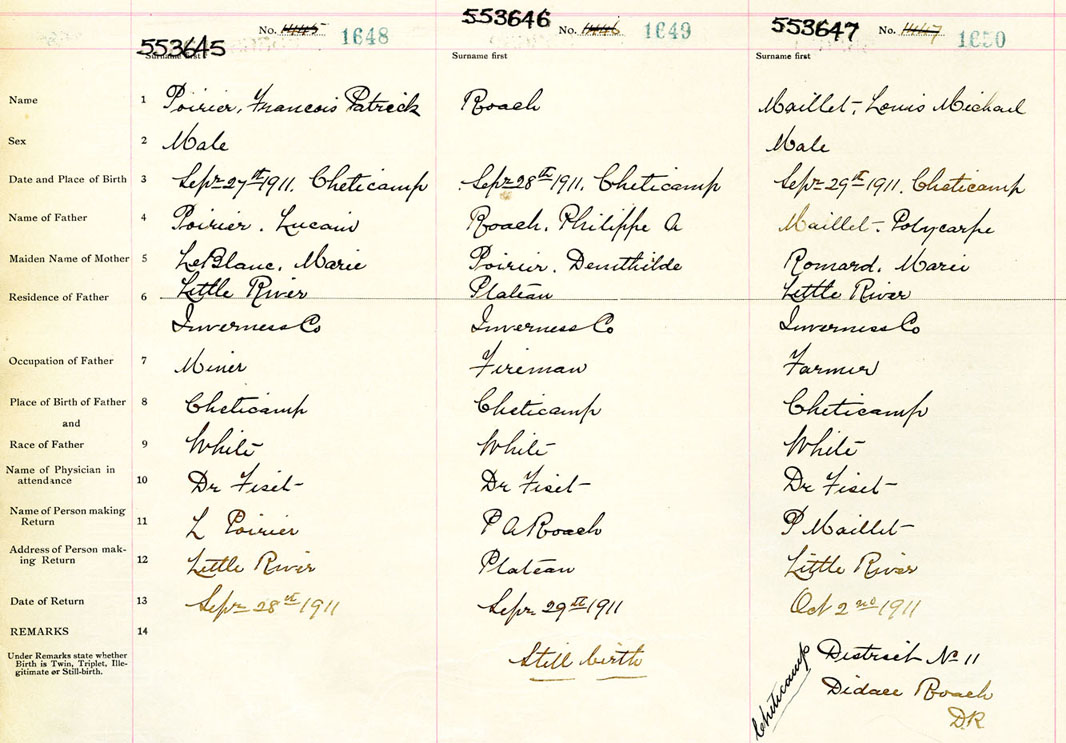 553645 No. 1445 1648 553646 No. 1446 1649 553647 No. 1447 1650
Surname first Surname first Surname first
Name 1 Poirier, Francois Patrick Roach Maillet, Louis Michael
Sex 2 Male Male
Date and Place of Birth 3 Sepr 27th 1911. Cheticamp Sepr 28th 1911. Cheticamp Sepr 29th 1911. Cheticamp
Name of Father 4 Poirier. Lucain Roach. Philippe A Maillet. Polycarpe
Maiden Name of Mother 5 LeBlanc. Marie Poirier. Demthilde Romard. Marie
Residence of Father 6 Little River Plateau Little River
Inverness Co Inverness Co Inverness Co
Occupation of Father 7 Miner Fireman Farmer
Place of Birth of Father 8 Cheticamp Cheticamp Cheticamp
and
Race of Father 9 White White White
Name of Physician in
attendance 10 Dr Fiset Dr Fiset Dr Fiset
Name of Person making
Return 11 L Poirier P A Roach P Maillet
Address of Person mak-
ing Return 12 Little River Plateau Little River
Date of Return 13 Sepr 28th 1911 Sepr 29th 1911 Oct 2nd 1911
REMARKS 14
Under Remarks state whether
Birth is Twin, Triplet, Ille-
gitimate or Still-birth.
Still birth
Cheticamp
District No 11
Didace Roach
DR